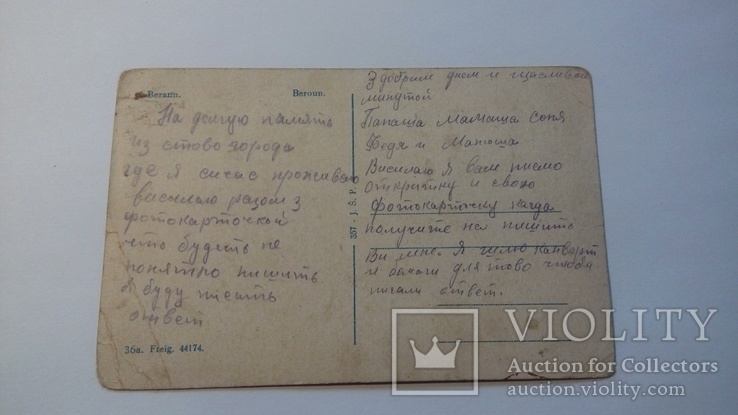 Beraun. Beroun.
На долгую память
из етово города
где я сичас проживаю
висилаю разом з
фотокарточкой
что будеть не
понятно пишить
я буду писать
ответ
36a. Freig. 44174.
357 - J. Š. P.
З добрим днем и щасливой
минутой
Папаша Мамаша Соня
Федя и Матюша
Висилаю Я вам писмо
откритку и свою
фотокарточку когда
получите
Ви мне. Я шлю канверт
и бомаги для тово чтоби
писали ответ.
VIOLITY
Auction for Collectors
auction.violity.com